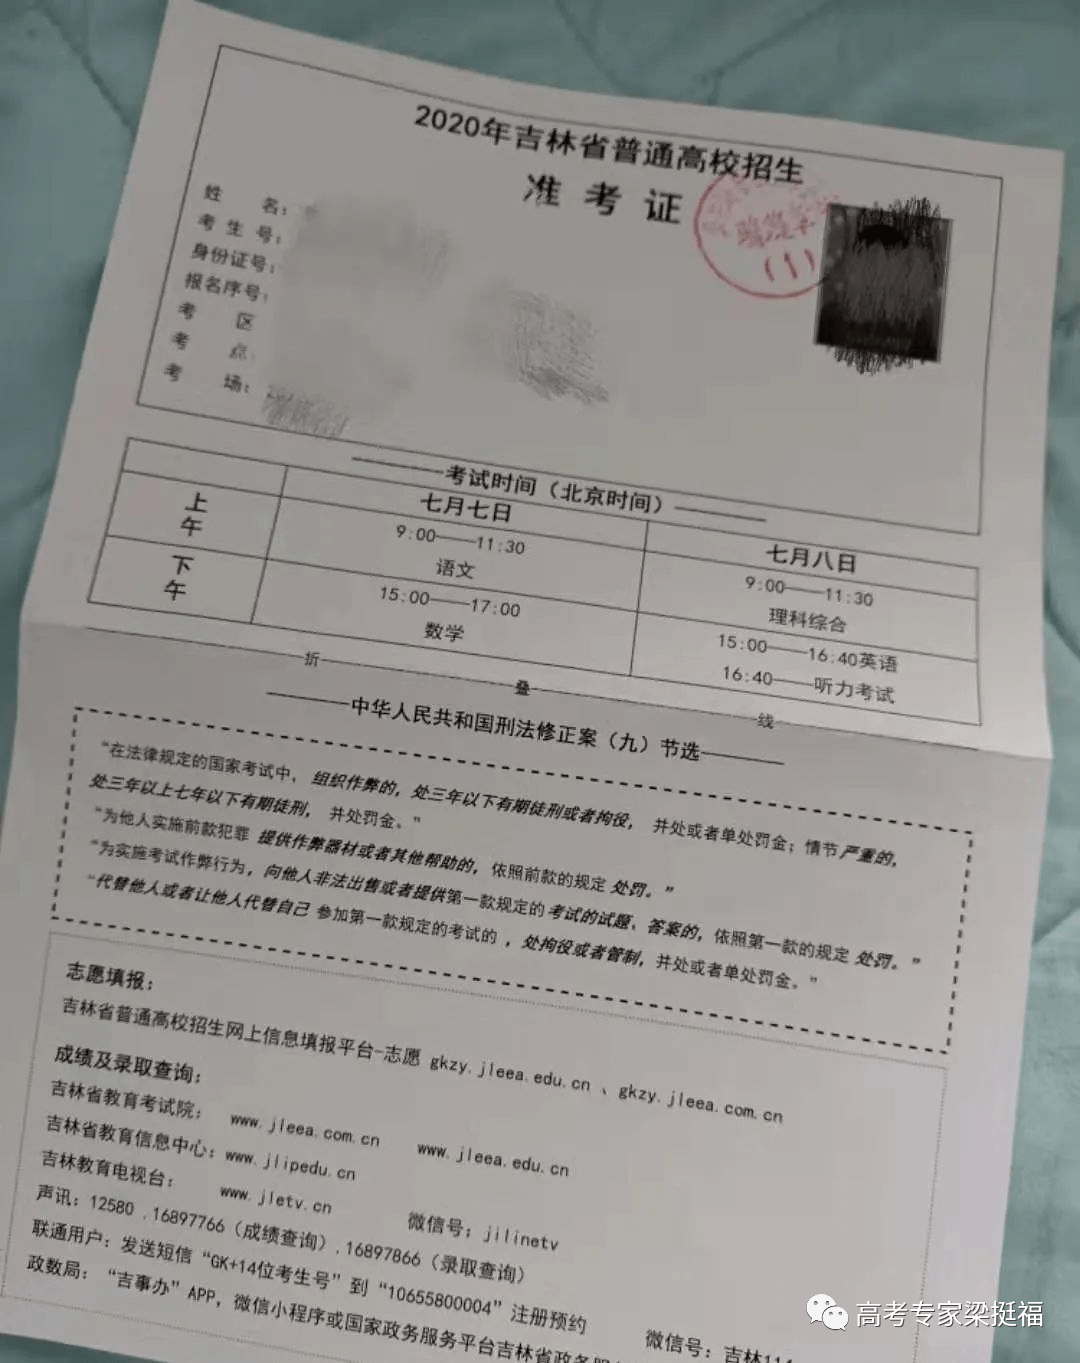 2020年吉林省普通高校招生
准考证
(1)
姓 名：
考生号：
身份证号：
报名序号：
考 区
考 点：
考 场：
————考试时间（北京时间）————
七月七日 七月八日
上午 9:00——11:30 9:00——11:30
语文 理科综合
下午 15:00——17:00 15:00——16:40英语
数学 16:40——听力考试
折 叠 线
————中华人民共和国刑法修正案（九）节选————
“在法律规定的国家考试中，组织作弊的，处三年以下有期徒刑或者拘役，并处或者单处罚金；情节严重的，
处三年以上七年以下有期徒刑，并处罚金。”
“为他人实施前款犯罪 提供作弊器材或者其他帮助的，依照前款的规定 处罚。”
“为实施考试作弊行为，向他人非法出售或者提供第一款规定的考试的试题、答案的，依照第一款的规定 处罚。”
“代替他人或者让他人代替自己 参加第一款规定的考试的 ，处拘役或者管制，并处或者单处罚金。”
志愿填报：
吉林省普通高校招生网上信息填报平台-志愿 gkzy.jleea.edu.cn 、gkzy.jleea.com.cn
成绩及录取查询：
吉林省教育考试院： www.jleea.com.cn www.jleea.edu.cn
吉林省教育信息中心：www.jlipedu.cn
吉林教育电视台： www.jletv.cn 微信号：jilinetv
声讯：12580 ,16897766（成绩查询）,16897866（录取查询）
联通用户：发送短信“GK+14位考生号”到“10655800004”注册预约
政数局：“吉事办”APP，微信小程序或国家政务服务平台吉林省政务服 微信号：吉林114
高考专家梁挺福